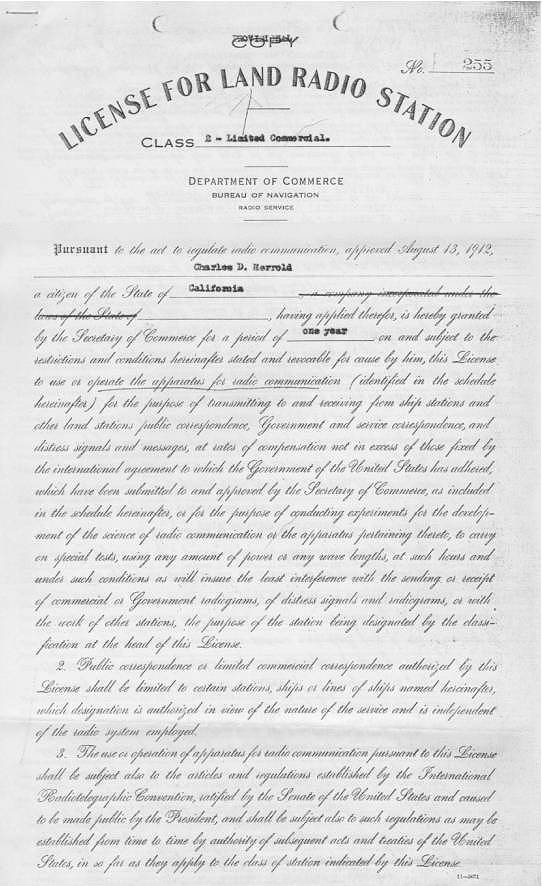 COPY
No. 255
LICENSE FOR LAND RADIO STATION
CLASS 2 - Limited Commercial.
DEPARTMENT OF COMMERCE
BUREAU OF NAVIGATION
RADIO SERVICE
Pursuant to the act to regulate radio communication, approved August 13, 1912,
Charles D. Herrold
a citizen of the State of California, a company incorporated under the
laws of the State of , having applied therefor, is hereby granted
by the Secretary of Commerce for a period of one year on and subject to the
restrictions and conditions hereinafter stated and revocable for cause by him, this License
to use or operate the apparatus for radio communication (identified in the schedule
hereinafter) for the purpose of transmitting to and receiving from ship stations and
other land stations public correspondence, Government and service correspondence, and
distress signals and messages, at rates of compensation not in excess of those fixed by
the international agreement to which the Government of the United States has adhered,
which have been submitted to and approved by the Secretary of Commerce, as included
in the schedule hereinafter, or for the purpose of conducting experiments for the develop-
ment of the science of radio communication or the apparatus pertaining thereto, to carry
on special tests, using any amount of power or any wave lengths, at such hours and
under such conditions as will insure the least interference with the sending or receipt
of commercial or Government radiograms, of distress signals and radiograms, or with
the work of other stations, the purpose of the station being designated by the classi-
fication at the head of this License.
2. Public correspondence or limited commercial correspondence authorized by this
License shall be limited to certain stations, ships or lines of ships named hereinafter,
which designation is authorized in view of the nature of the service and is independent
of the radio system employed.
3. The use or operation of apparatus for radio communication pursuant to this License
shall be subject also to the articles and regulations established by the International
Radiotelegraphic Convention, ratified by the Senate of the United States and caused
to be made public by the President, and shall be subject also to such regulations as may be
established from time to time by authority of subsequent acts and treaties of the United
States, in so far as they apply to the class of station indicated by this License.